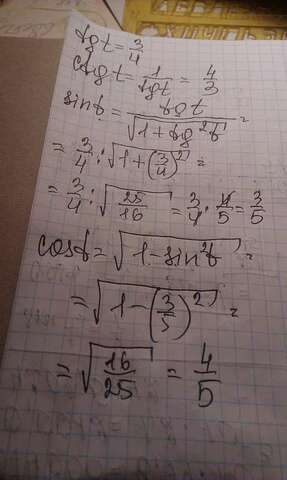 tg t = 3/4
ctg t = 1/tg t = 4/3
sin t = tg t/√(1+tg²t) =
= 3/4 : √(1+(3/4)²) =
= 3/4 : √(25/16) = 3/4 · 4/5 = 3/5
cos t = √(1-sin²t) =
= √(1-(3/5)²) =
= √(16/25) = 4/5